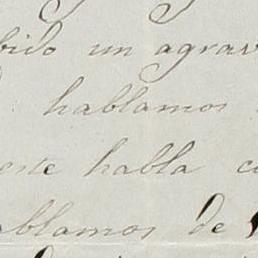 bido un agrav
hablamos
este habla co
ablamos de